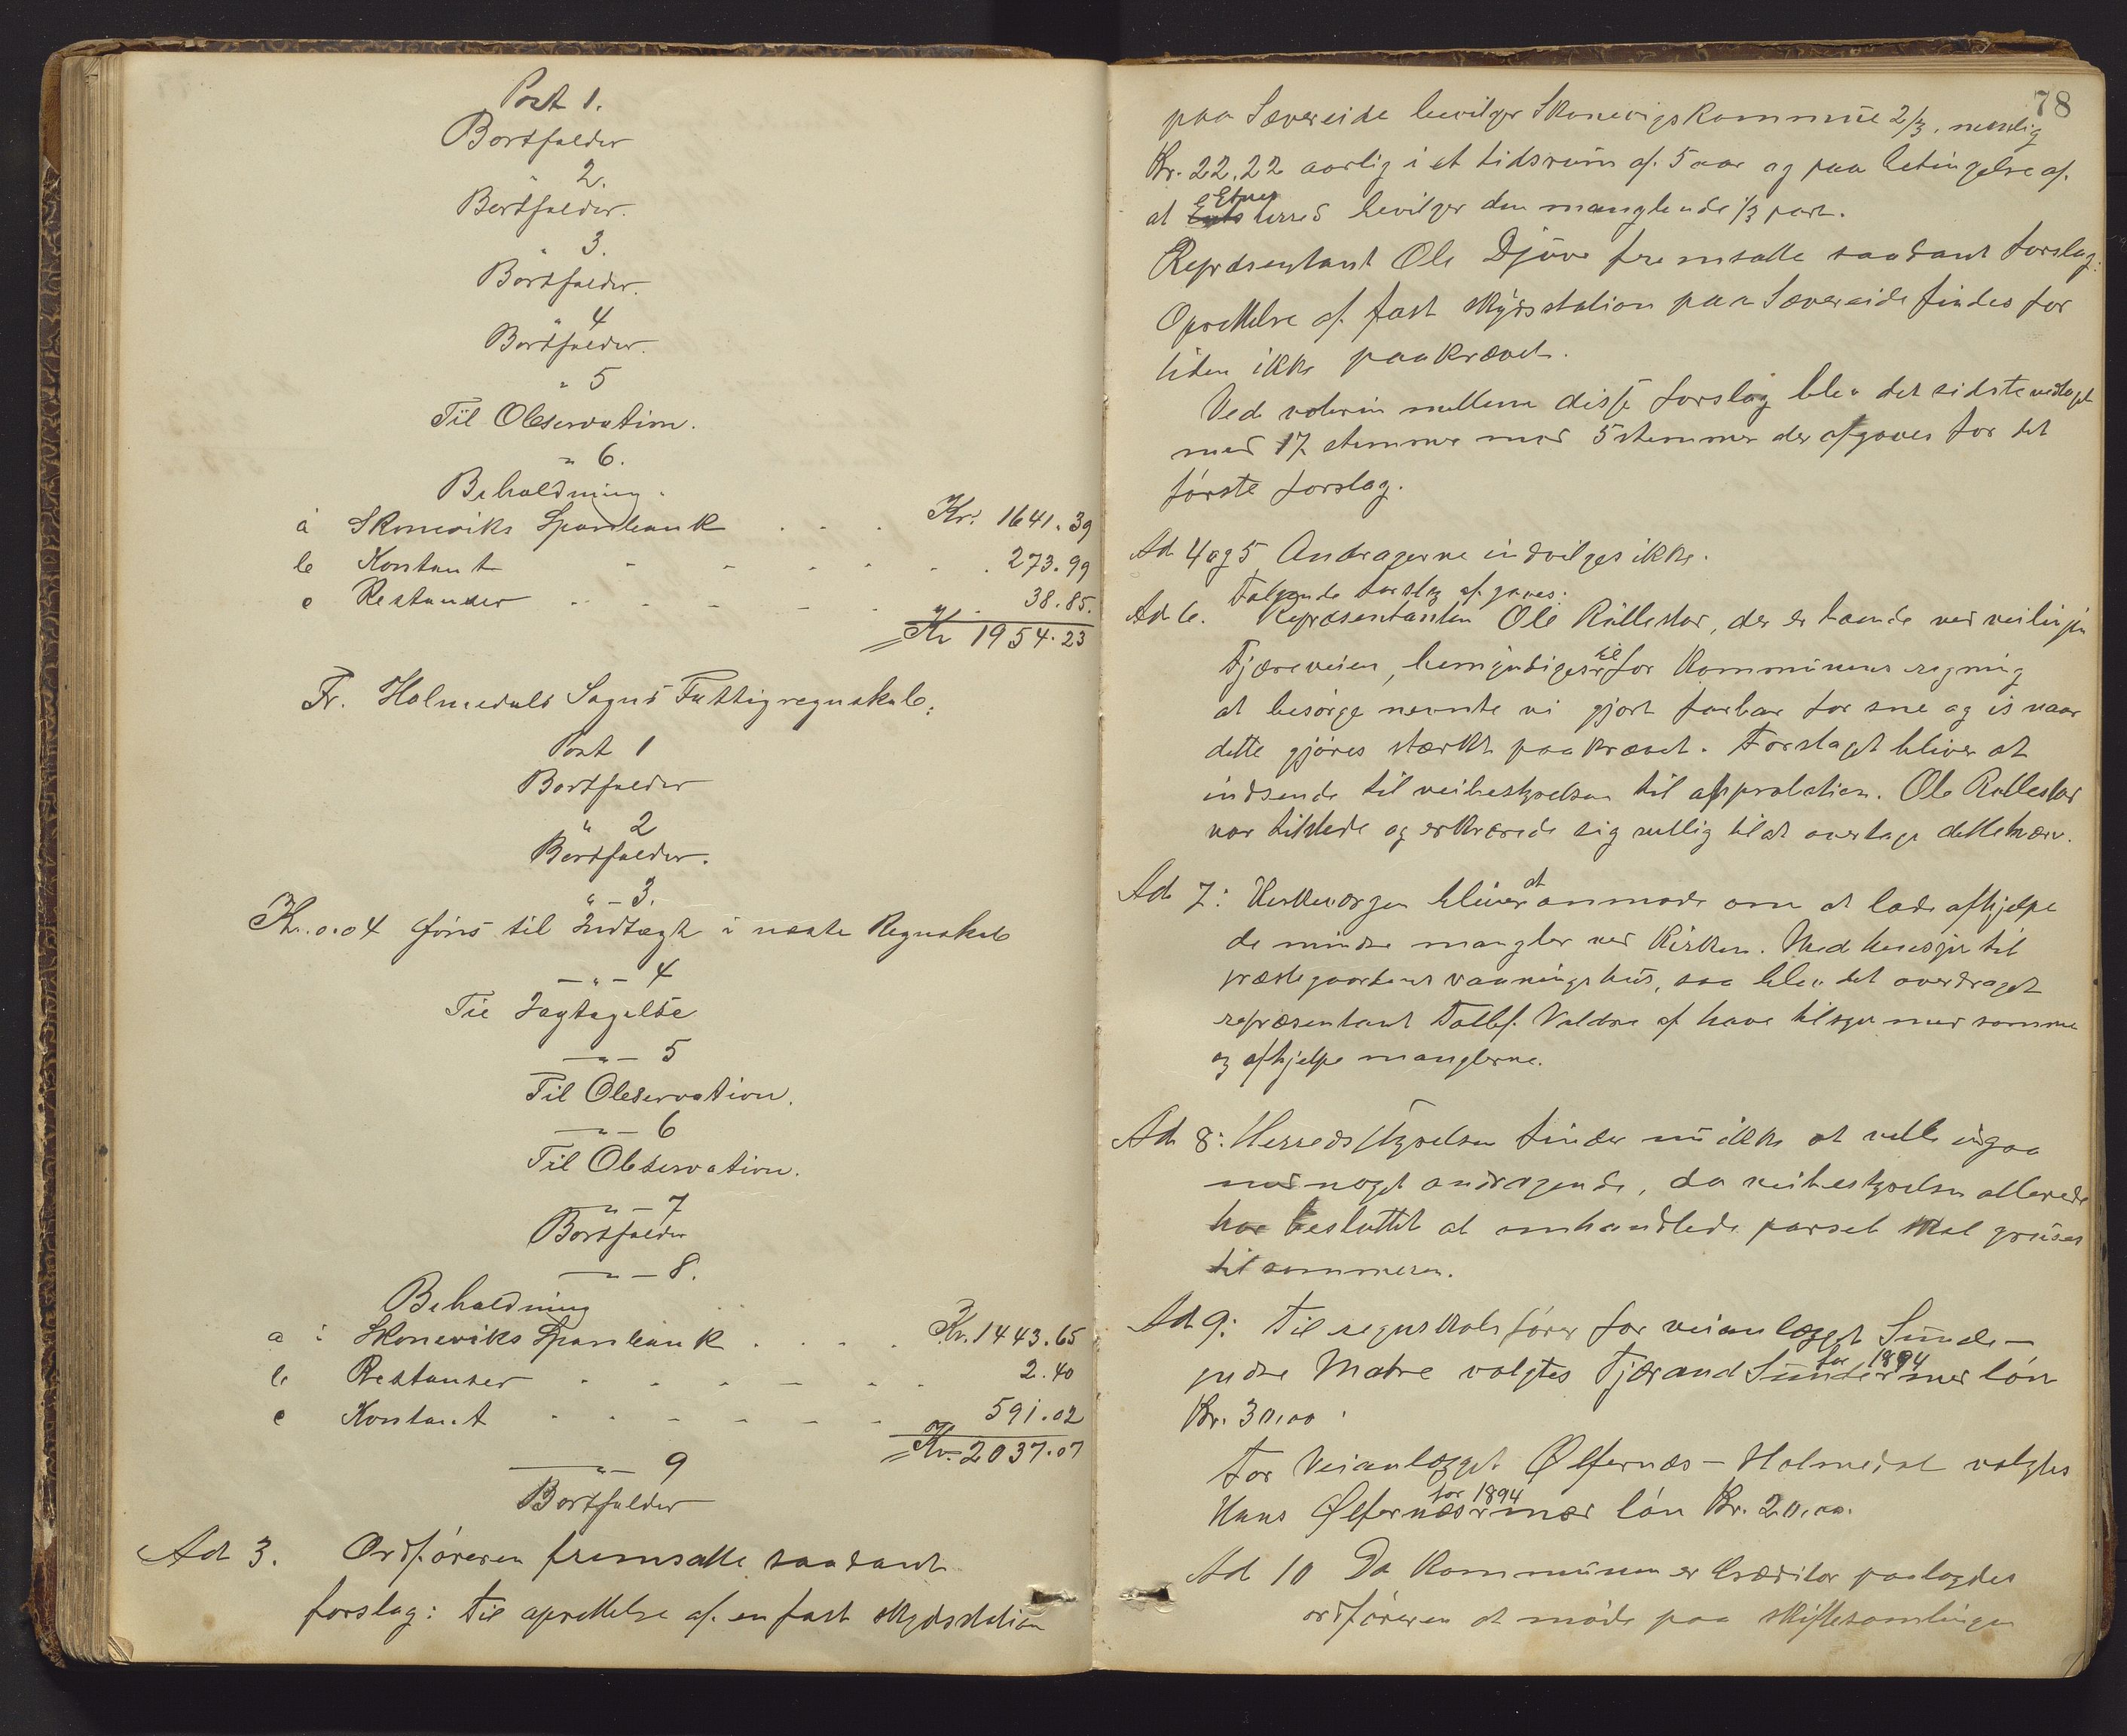 Post 1.
Bortfalder
" 2.
Bortfalder.
" 3.
Bortfalder.
" 4
Bortfalder.
" 5
Til Observation.
" 6.
Beholdning.
a Skoneviks Sparebank . . . Kr. 1641.39
b Kontant - - - - - . 273.99
c Restanser - - - - - " . 38.85.
Kr 1954.23
Fr. Holmedals Sogns Fattigregnskab:
Post 1
Bortfalder
" 2
Bortfalder.
" - 3.
Kr. 0.04 föres til Indtægt i næste Regnskab
- " - 4
Til Iagtagelse
- " - 5
Til Observation.
- " - 6
Til Observation.
- " - 7
Bortfalder
- " - 8.
Beholdning
a : Skoneviks Sparebank . . . . Kr. 1443.65
b Restanser - - - - - - 2.40
c Kontant - - - - - - 591.02
Kr. 2037.07
- " - 9
Bortfalder
Ad 3. Ordföreren fremsatte saadant
forslag: Til oprettelse af en fast skydsstation
78
paa Sævereide bevilger Skonevigs Kommune 2/3, nemlig
Kr. 22.22 aarlig i et tidsrum af 5 aar og paa betingelse af
at Etne herred bevilger den manglende 1/3 part.
Repræsentant Ole Djúve fremsatte saadant forslag:
Oprettelse af fast skydsstation paa Sævereide findes for
tiden ikke paakrævet.
Ved votering mellem disse forslag blev det sidste vedtaget
med 17 stemmer mod 5 stemmer der afgaves for det
förste forslag.
Ad 4 og 5 Andragerne indvilges ikke.
Følgende forslag afgaves:
Ad 6. Repræsentanten Ole Rullestad, der er boende ved veilinjen
Fjæreveien, bemyndiges til for Kommunens regning
at besörge nevnte vei gjort farbar for sne og is naar
dette gjöres stærkt paakrævet. Forslaget bliver at
indsende til veibestyrelsen til approbation. Ole Rullestad
var tilstede og erklærede sig villig til at overtage dette hverv.
Ad 7: Kirkeværgen bliver at anmode om at lade afhjelpe
de mindre mangler ved Kirken. Med hensyn til
præstegaardens vaaningshus, saa blev det overdraget
repræsentant Tollef Valdra at have tilsyn med samme
og afhjelpe manglerne.
Ad 8: Herredsstyrelsen finder nu ikke at ville indgaa
med noget andragende, da veibestyrelsen allerede
har besluttet at omhandlede parsel skal gruses
til sommeren.
Ad 9: Til regnskabsfører for veianlægget Sunde-
indre Matre valgtes Tjerand Sunde for 1894 med lön
Kr. 30.00.
For Veianlægget Ølfernæs - Holmedal valgtes
Hans Ølfernæs for 1894 med lön Kr. 20.00.
Ad 10 Da Kommunen er kreditor paalagdes
ordföreren at möde paa skiftesamlingen